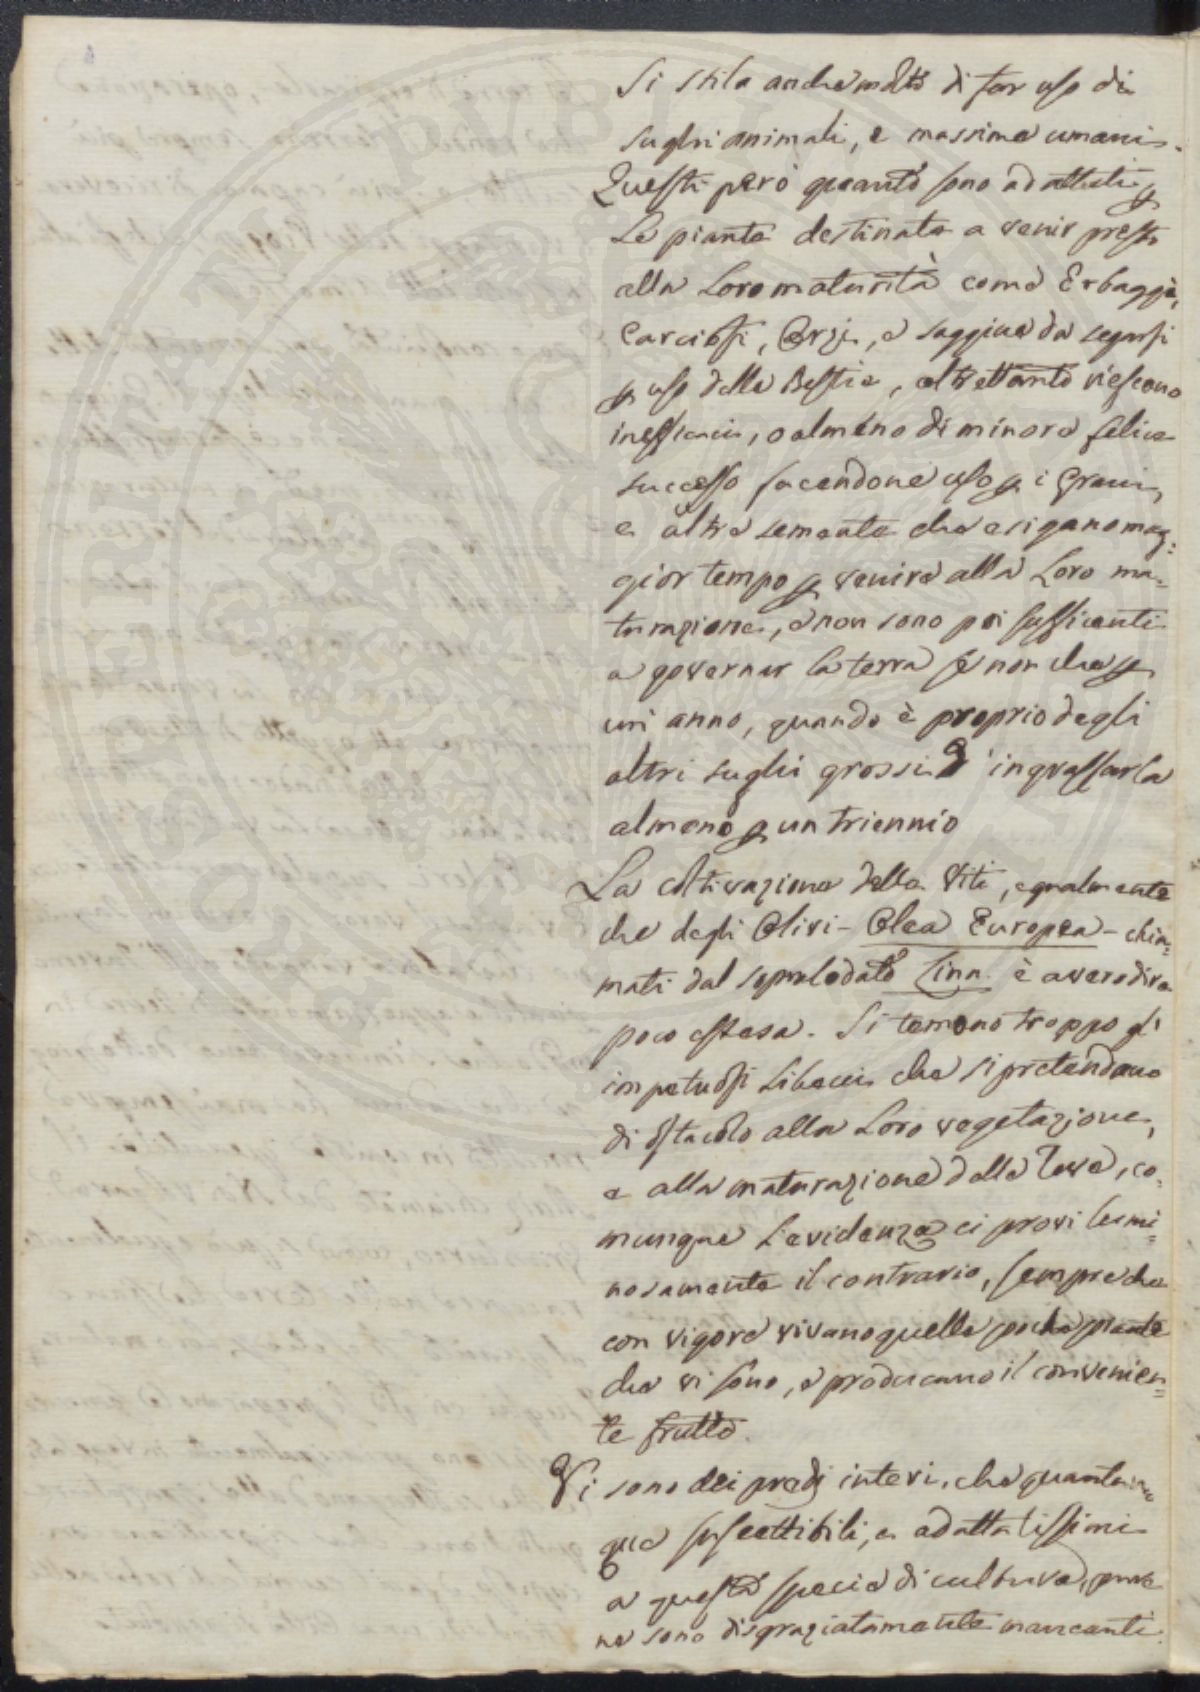 Si stila anche molto di far uso di
sughi animali, e massime umani.
Questi però quanto sono adattati p
Le piante destinate a venir presto
alla Loro maturità come Erbaggi,
Carciofi, Orzi, e saggine da segarsi
p uso delle Bestie, altrettanto riescono
inefficaci, o almeno di minore felice
successo facendone uso p i Grani,
e altre semente che esigano mag=
gior tempo p venire alla Loro ma=
turazione, e non sono poi sufficenti
a governar la terra se non che p
un anno, quando è proprio degli
altri sughi grossi d'ingrassarla
almeno p un triennio
La coltivazione delle Viti, egualmente
che degli Olivi - Olea Europea - chia=
mati dal sopralodato Linn. è a vero dire
poco estesa. Si temono troppo gl'
impetuosi Libecci che si pretendono
di ostacolo alla Loro vegetazione,
e alla maturazione delle Uve, co=
munque L'evidenza ci provi lumi=
nosamente il contrario, sempre che
con vigore vivano quelle poche piante
che vi sono, e producano il convenien=
te frutto.
Vi sono dei predj interi, che quantun
que suscettibili, e adattatissimi
a questa specie di cultura, pure
ne sono disgraziatamente mancanti.